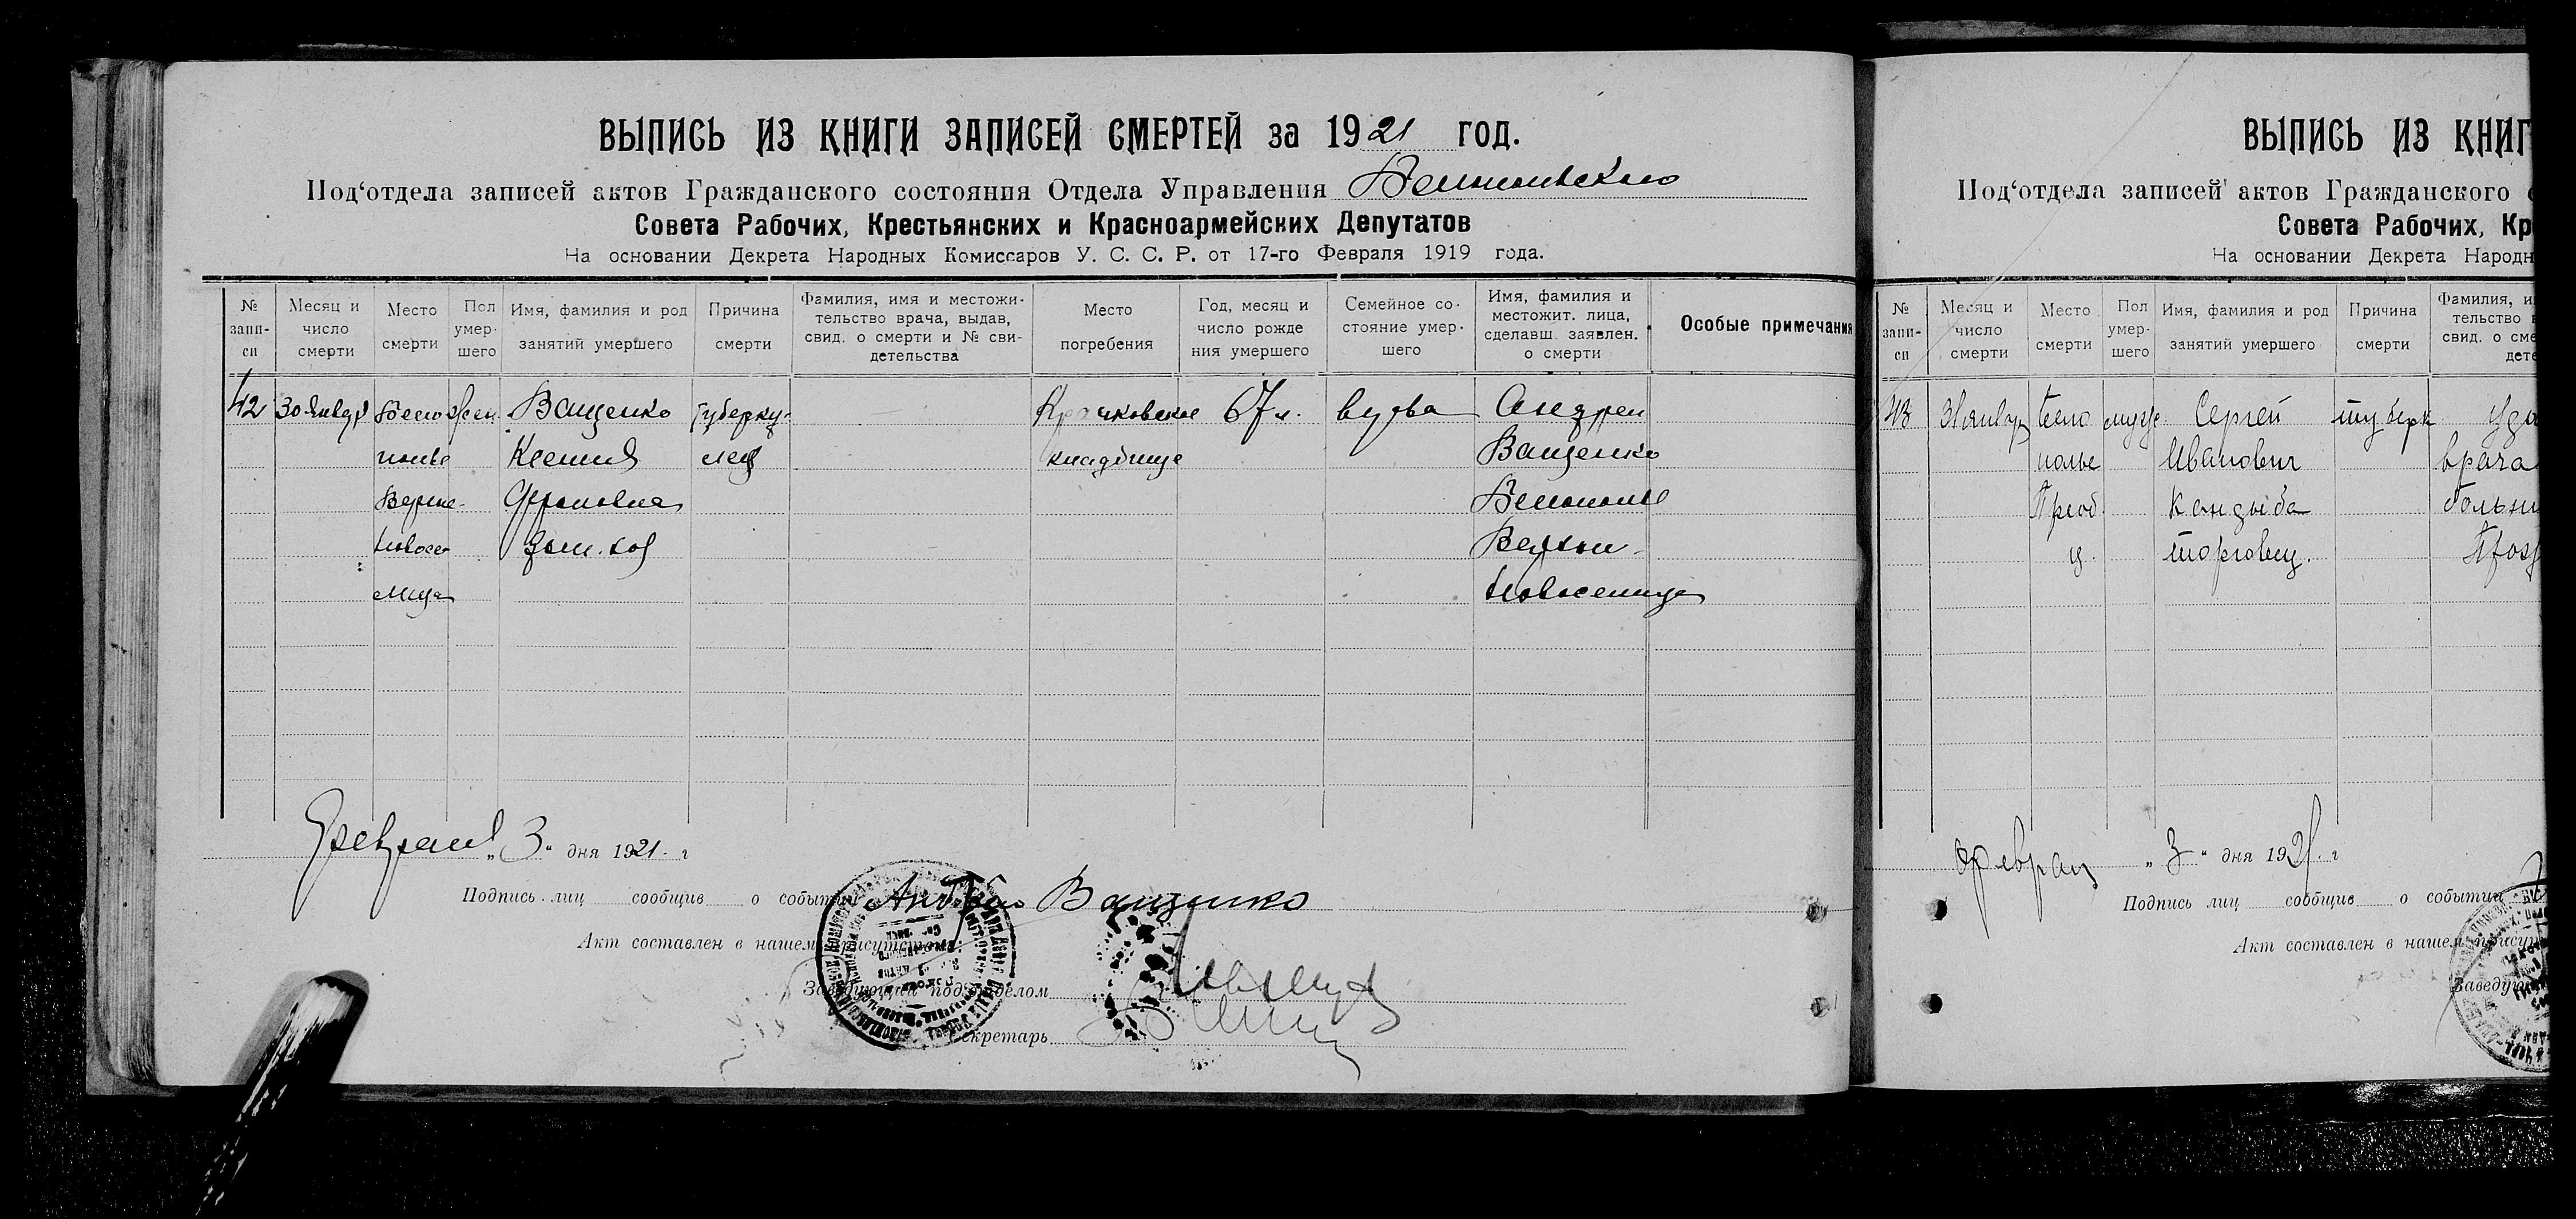 ВЫПИСЬ ИЗ КНИГИ ЗАПИСЕЙ СМЕРТЕЙ за 1921 год.
Под‘отдела записей актов Гражданского состояния Отдела Управления
Совета Рабочих, Крестьянских и Красноармейских Депутатов
На основании Декрета Народных Комиссаров У. С. С. Р. от 17-го Февраля 1919 года.
№ запи-си
Месяц и число смерти
Место смерти
Пол умер-шего
Имя, фамилия и род занятий умершего
Причина смерти
Фамилия, имя и местожи-тельство врача, выдав, свид. о смерти и № сви-детельства
Место погребения
Год, месяц и число рожде ния умершего
Семейное со-стояние умер-шего
Имя, фамилия и местожит. лица, сделавш. заявлен. о смерти
Особые примечания
42 30 Январ Бело жен. Ващенко Туберку- 67 л. вдова Андрей
полье Ксения лез кладбище Ващенко
Верхне- Белополье
Новосе- дом. хоз Верхне-
лица Новоселица
Февраля „3“ дня 1921 г
Подпись лиц сообщив о событии Андрей Ващенко
Акт составлен в нашем присутствии:
Заведующий подотделом
Секретарь
ВЫПИСЬ ИЗ КНИГ
Под‘отдела записей актов Гражданского
Совета Рабочих, Кр
На основании Декрета Народн
№ запи-си
Месяц и число смерти
Место смерти
Пол умер-шего
Имя, фамилия и род занятий умершего
Причина смерти
Фамилия, и
тельство
свид. о сме
дете
43 31 январ Бело муж. Сергей туберк
полье Иванович врача
Кандыба больни
торговец.
Феврал „3“ дня 1921 г
Подпись лиц сообщив о событии
Акт составлен в нашем присут
Заведую